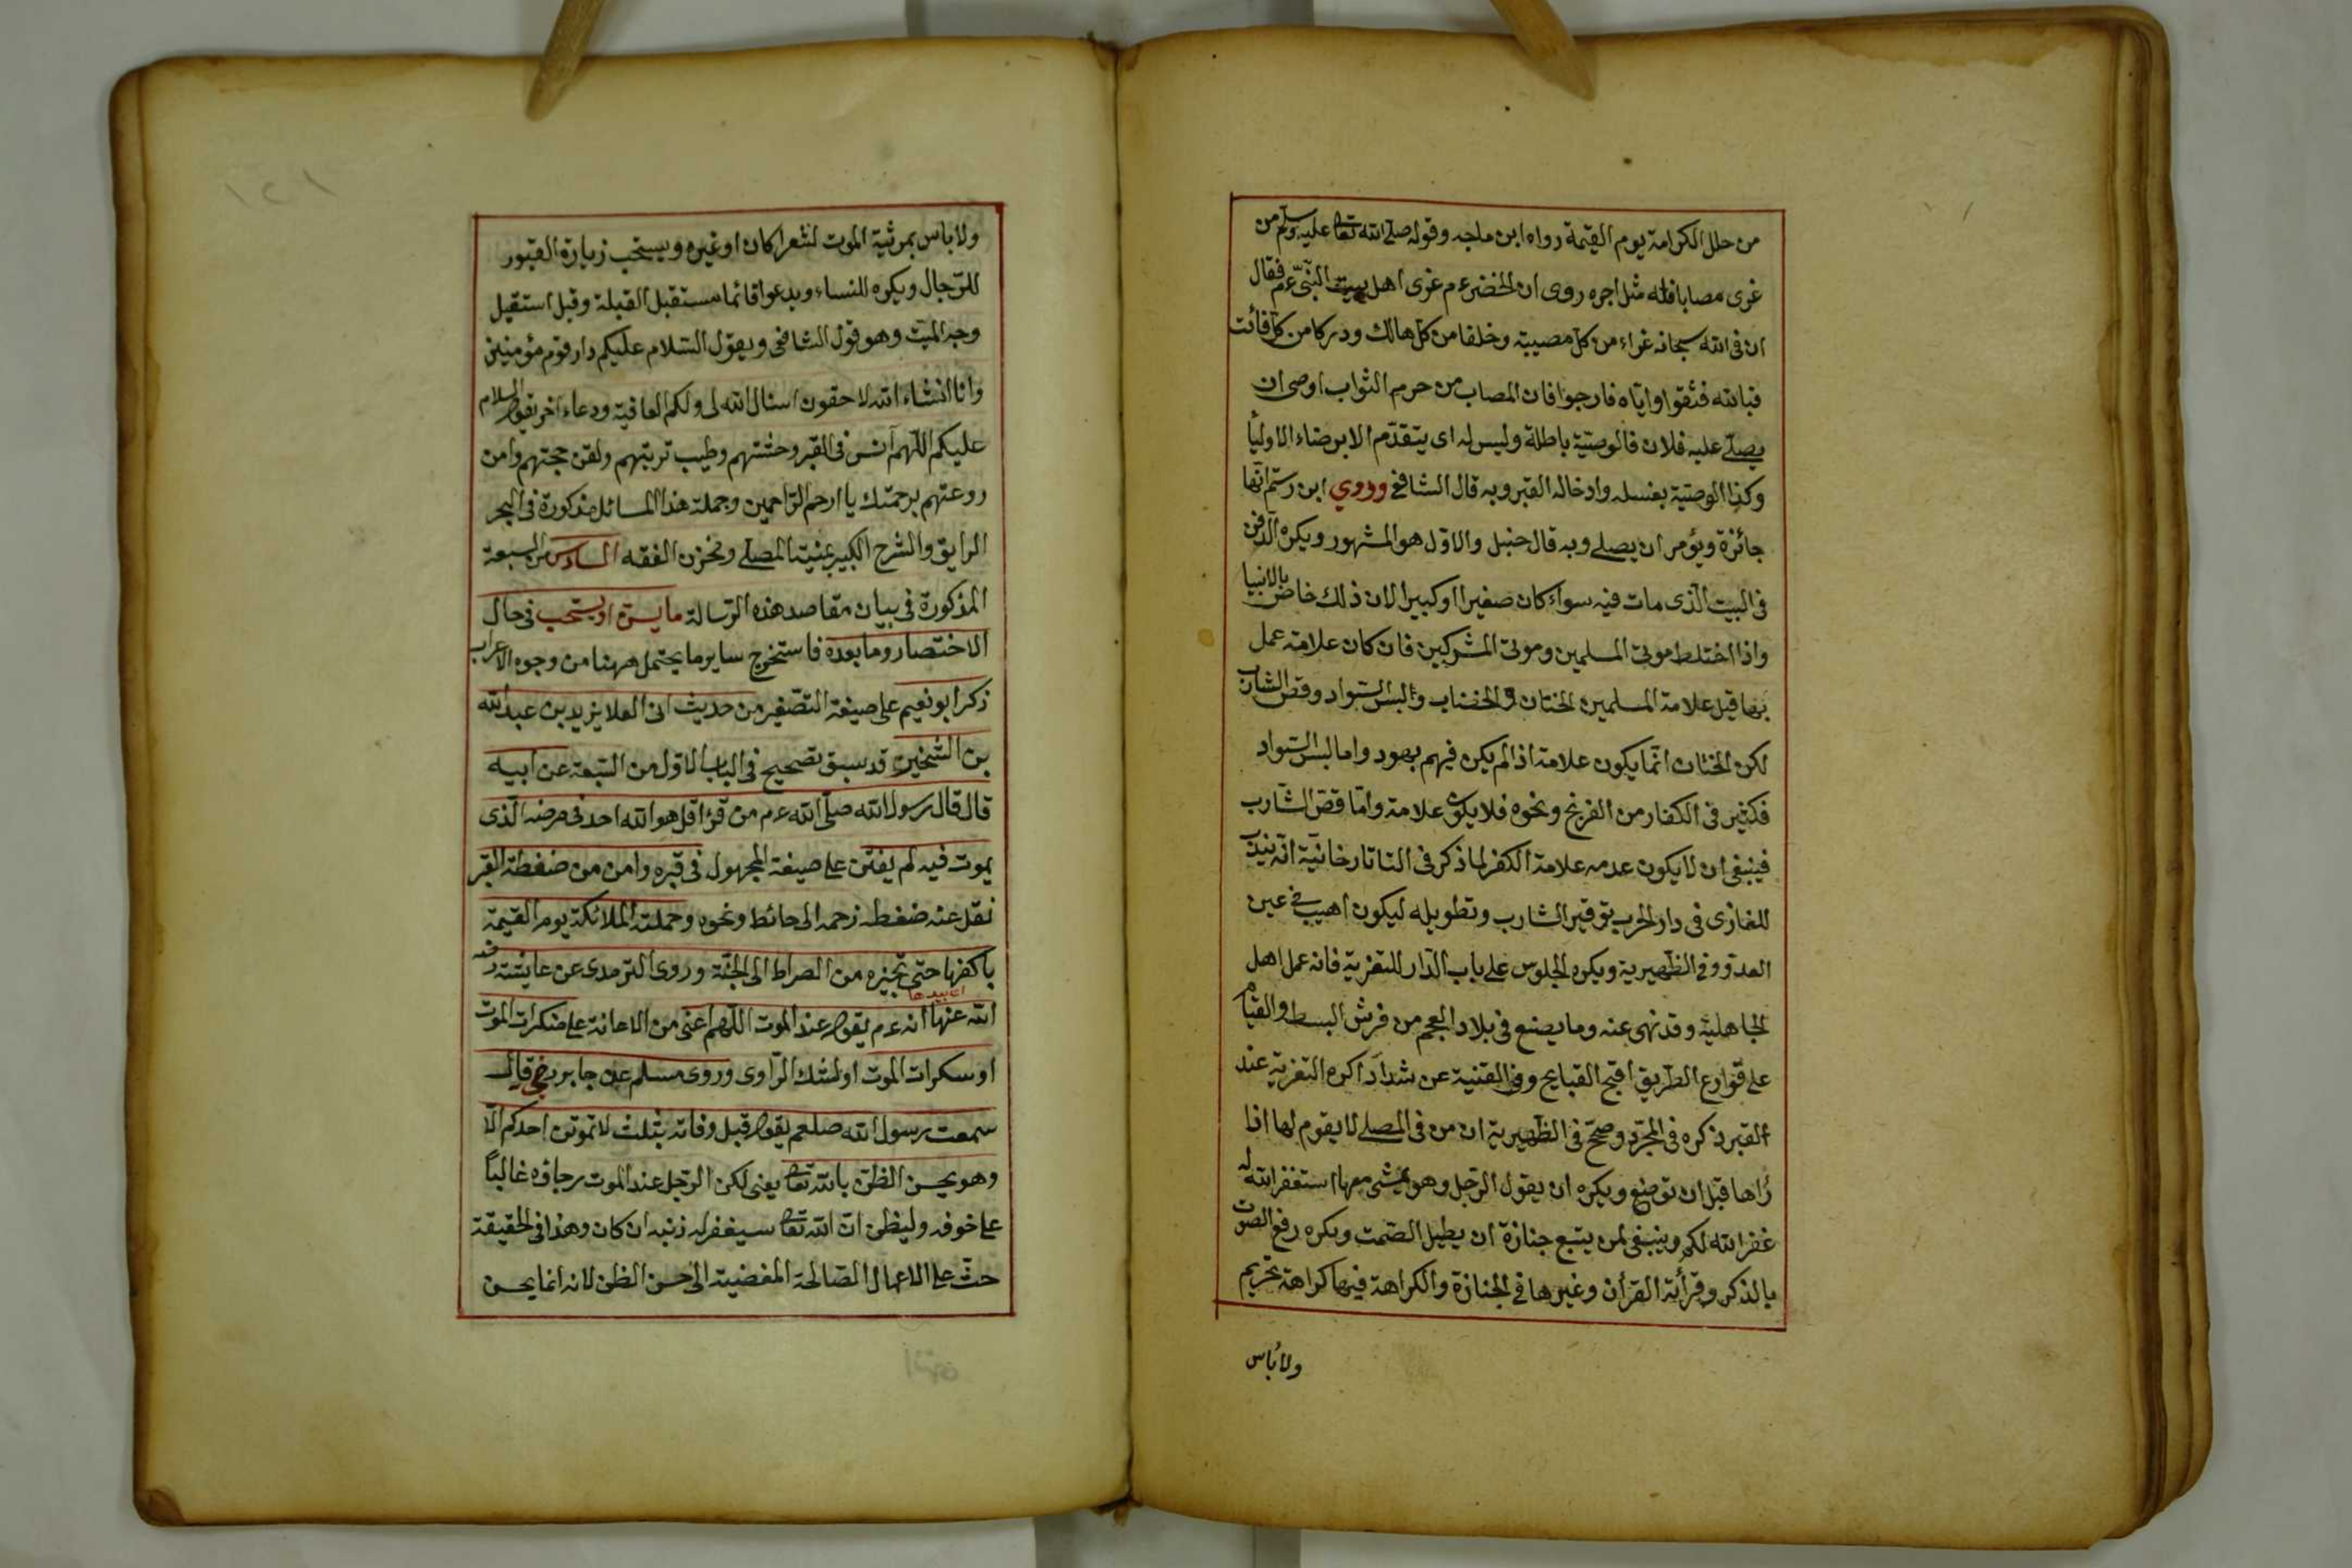 من حلل الكرامة يوم القيمة رواه ابن ماجه وقوله صلى الله تعا عليه وسلم من
غزى مصابا فله مثل اجره روى ان الخضر ع م غزى اهل بيت النبي ع م فقال
ان فى الله سبحانه غراء من كل مصيبة وخلفا من كل هالك ودركا من كل فائت
فبالله فثقوا واياه فارجوا فان المصاب من حرم الثواب اوصى ان
يصلى عليه فلان فالوصية باطلة وليس له اى يتقدم الا برضاء الاوليأ
وكذا الوصية بغسله وادخاله القبر وبه قال الشافعى وروي ابن رستم انها
جائزة ويؤمر ان يصلى وبه قال حنبل والاول هو المشهور ويكره الدفن
فى البيت الذى مات فيه سواء كان صغيرا او كبيرا لان ذلك خاص بالانبيا
واذا اختلط موتى المسلمين وموتى المشركين فان كان علامة عمل
بها قيل علامة المسلمين الختان والخضاب والبس السواد وقص الشارب
لكن الختان انما يكون علامة اذا لم يكن فيهم يهود واما لبس السواد
فكثير فى الكفار من الفرنج ونحوه فلا يكون علامة واما قص الشارب
فينبغى ان لا يكون عدمه علامة الكفر لما ذكر فى التاتارخانية انه يندب
للغازى فى دار الحرب توقير الشارب وتطويله ليكون اهيب فى عين
العدو وفى الظهيرية ويكره الجلوس على باب الدار للتعزية فانه عمل اهل
الجاهلية وقد نهى عنه وما يصنع فى بلاد العجم من فرش البسط والقيام
على قوارع الطريق اقبح القبايح وفى القنية عن شداد اكره التعزية عند
القبر ذكره فى المجرد وصح فى الظهيرية ان من فى المصلى لا يقوم لها اذا
رأها قبل ان توضع ويكره ان يقول الرجل وهو يمشى معها استغفر الله له
غفر الله لكم وينبغى لمن يتبع جنازة ان يطيل الصمت ويكره رفع الصوت
بالذكر وقرأة القرأن وغيرها فى الجنازة والكراهة فيها كراهة تحريم
ولا بأس
ولا باس بمرثية الموت لشعرا كان او غيره ويستحب زيارة القبور
للرجال ويكره للنساء ويدعوا قائما مستقبل القبلة وقيل استقبل
وجه الميت وهو قول الشافعى ويقول السلام عليكم دار قوم مؤمنين
وانا انشاء الله لاحقون اسئال الله لى ولكم العافية ودعاء اخر يقول السلام
عليكم اللهم آنس فى القبر وحشتهم وطيب تربتهم ولقن حجتهم وامن
روعتهم برحمتك يا ارحم الراحمين وجملة هذا المسائل مذكورة فى البحر
الرايق والشرح الكبير بمنية المصلى ومخزن الفقه السادس من السبعة
المذكورة فى بيان مقاصد هذه الرسالة ما يسن او يستحب فى حال
الاختصار وما بعده فاستخرج ساير ما يحتمل ههنا من وجوه الاعراب
ذكر ابو نعيم على صيغة التصغير من حديث ابى العلا يزيد بن عبد الله
بن الشخير قد سبق تصحيح فى الباب الاول من السبعة عن ابيه
قال قال رسول الله صلى الله ع م من قرأ قل هو الله احد فى مرضه الذى
يموت فيه لم يفتن على صيغة المجهول فى قبره وامن من ضغطة القبر
نقل عنه ضغطه زحمه الى حائط ونحوه وحملته الملائكة يوم القيمة
باكفها حتى تجيزه من الصراط الى الجنة وروى الترمدى عن عايشة رضى
الله عنها انه ع م يقول عند الموت اللهم اعنى من الاعانة على منكرات الموت
او سكرات الموت او لشك الراوى وروى مسلم عن جابر رضى قال
سمعت رسول الله صلعم يقول قبل وفاته بثلث لا تموتن احدكم الا
وهو يحسن الظن بالله تعا يعنى لكن الرجل عند الموت رجاؤه غالباً
على خوفه وليظن ان الله تعا سيغفر له ذنبه ان كان وهذا فى الحقيقة
حث على الاعمال الصالحة المفضية الى حسن الظن لانه انما يحسن